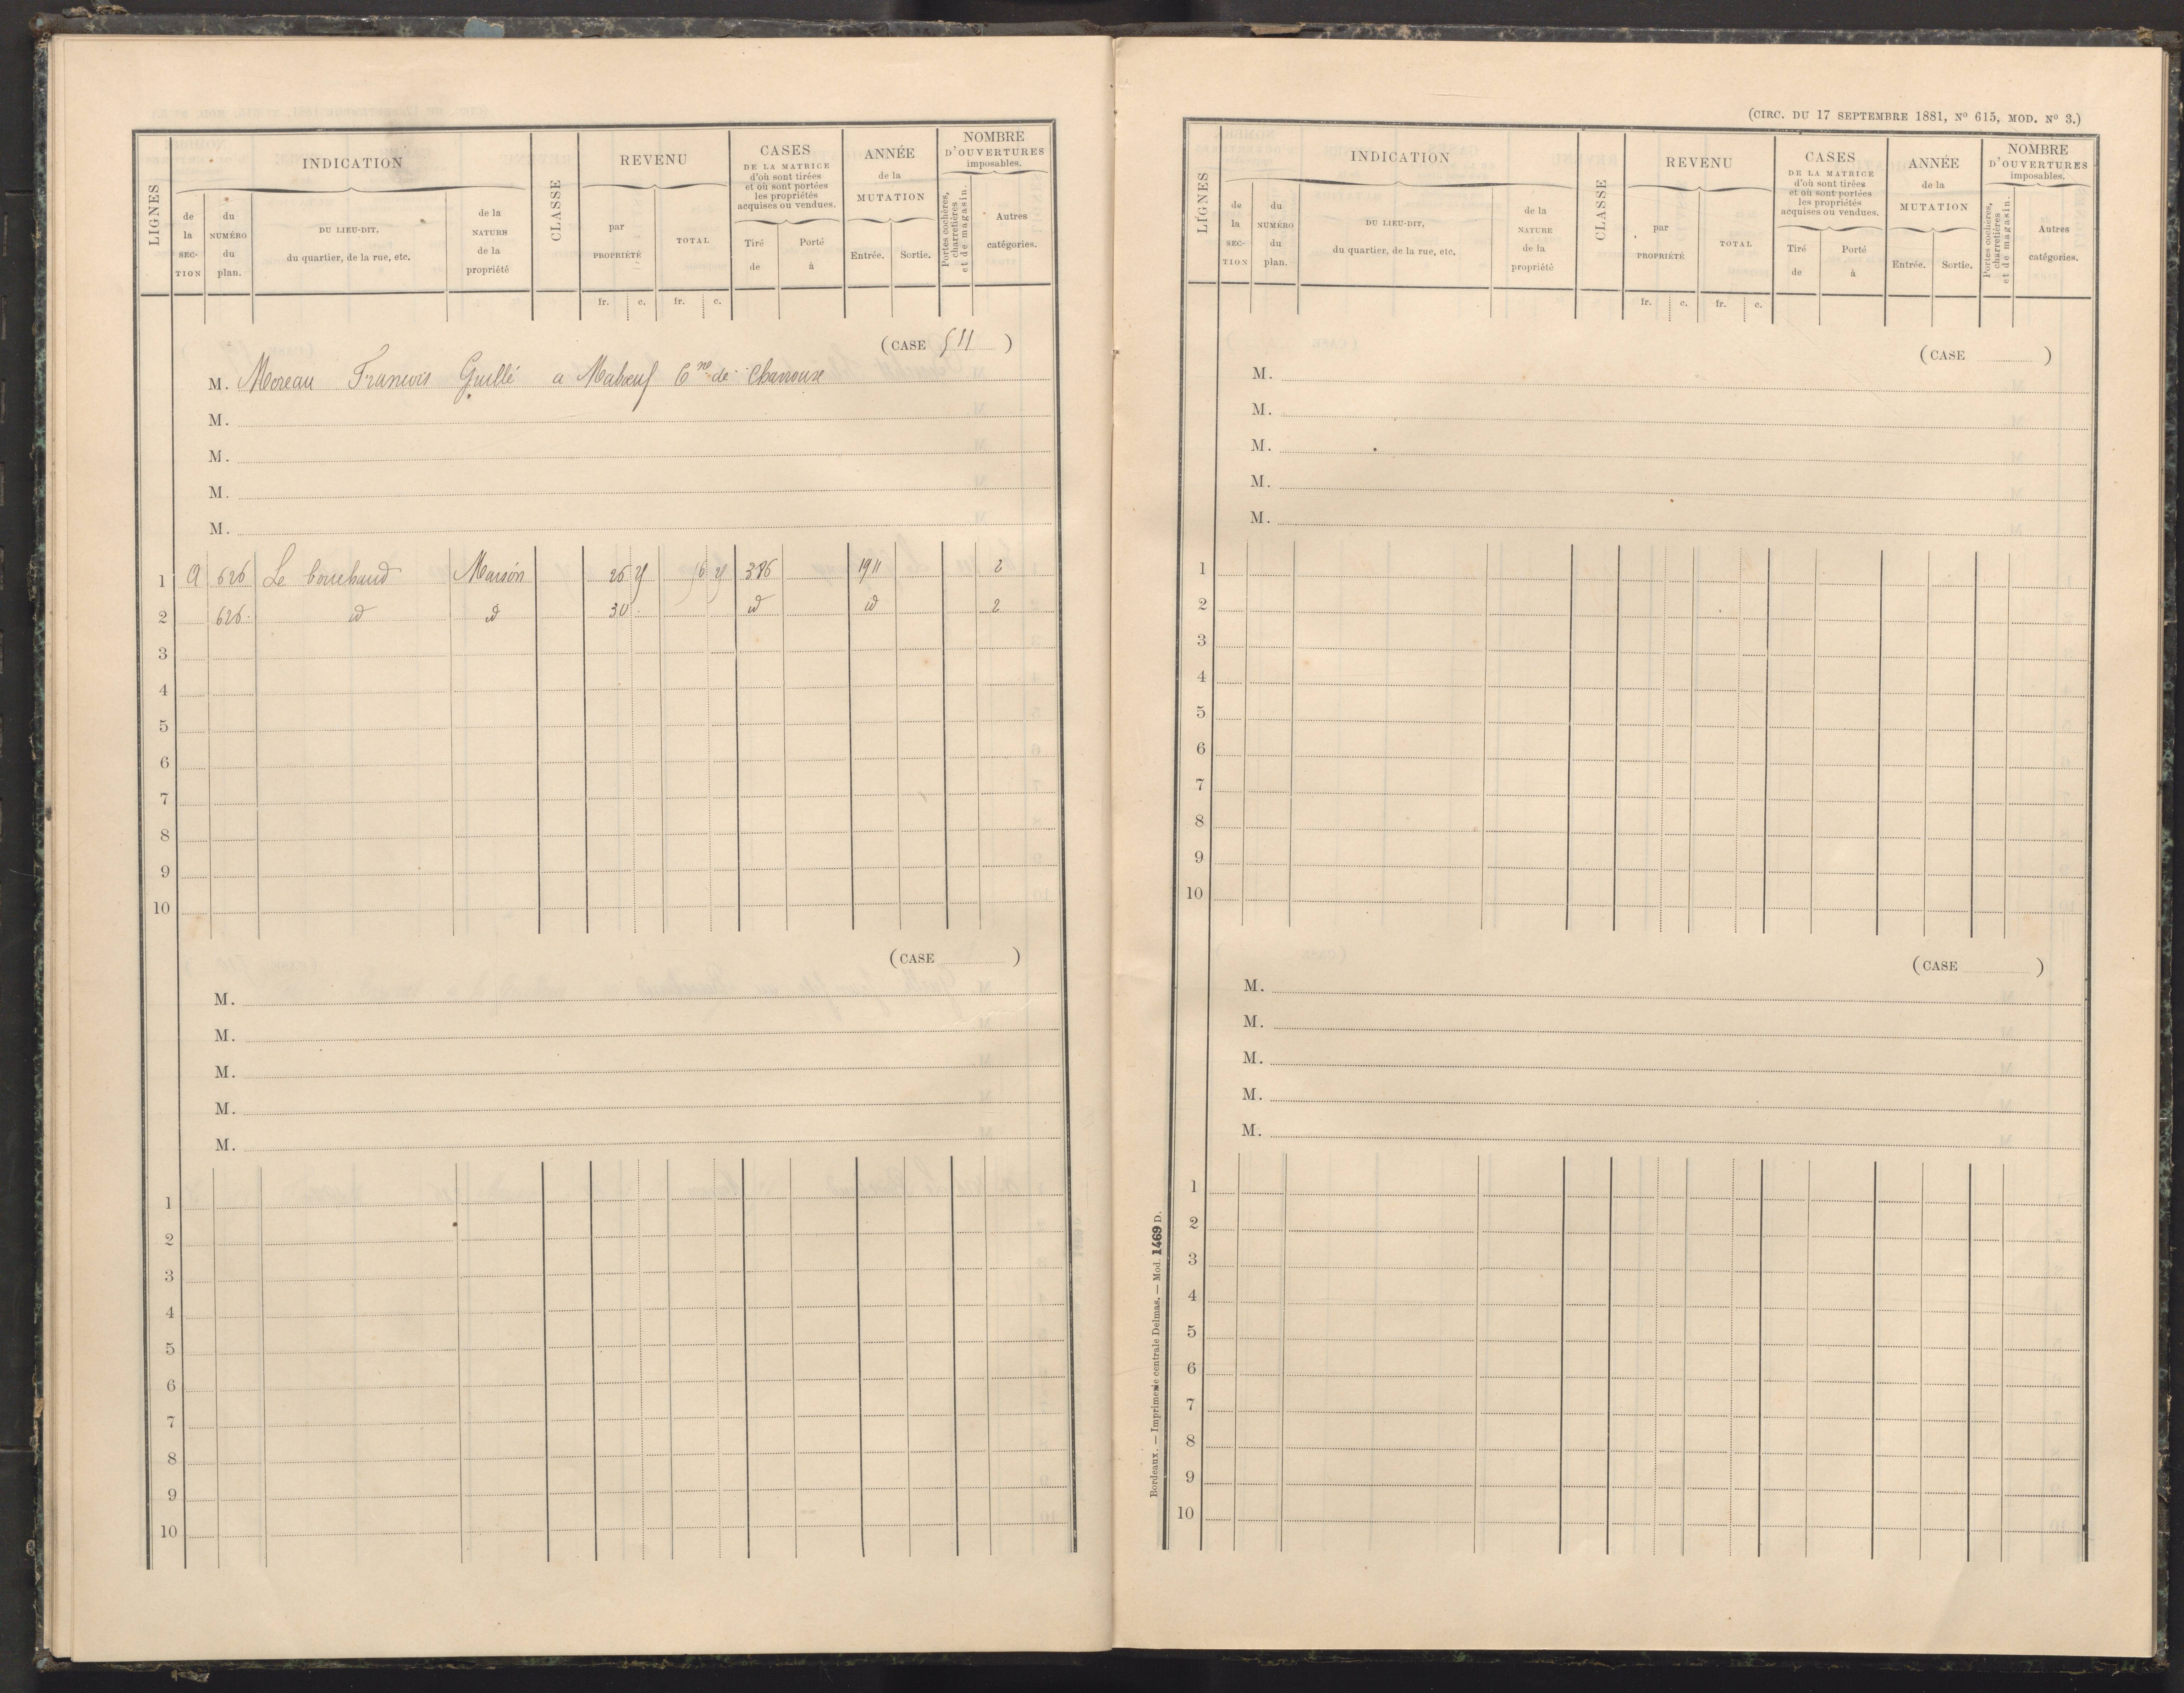 LIGNES
INDICATION
de la SECTION
du NUMÉRO du plan.
DU LIEU-DIT, du quartier, de la rue, etc.
de la NATURE de la propriété
CLASSE
REVENU
par PROPRIÉTÉ
TOTAL
fr. c. fr. c.
CASES
DE LA MATRICE
d'où sont tirées
et où sont portées
les propriétés
acquises ou vendues.
Tiré de
Porté à
ANNÉE
de la
MUTATION
Entrée. Sortie.
NOMBRE
D'OUVERTURES
imposables.
Portes cochères, charretières et de magasin.
Autres catégories.
(CASE 511)
M. Moreau Francois Guillé a Mabœuf Cne de Charroux
M.
M.
M.
M.
1 A 626 Le bouchaud Maison 26 386 1911 2
2 626 id id 30 id id 2
3
4
5
6
7
8
9
10
(CASE )
M.
M.
M.
M.
M.
1
2
3
4
5
6
7
8
9
10
(CIRC. DU 17 SEPTEMBRE 1881, Nº 615, MOD. Nº 3.)
LIGNES
INDICATION
de la SECTION
du NUMÉRO du plan.
DU LIEU-DIT, du quartier, de la rue, etc.
de la NATURE de la propriété
CLASSE
REVENU
par PROPRIÉTÉ
TOTAL
fr. c. fr. c.
CASES
DE LA MATRICE
d'où sont tirées
et où sont portées
les propriétés
acquises ou vendues.
Tiré de
Porté à
ANNÉE
de la
MUTATION
Entrée. Sortie.
NOMBRE
D'OUVERTURES
imposables.
Portes cochères, charretières et de magasin.
Autres catégories.
(CASE )
M.
M.
M.
M.
M.
1
2
3
4
5
6
7
8
9
10
(CASE )
M.
M.
M.
M.
M.
1
2
3
4
5
6
7
8
9
10
Bordeaux. — Imprimerie centrale Delmas. — Mod. 1469 D.